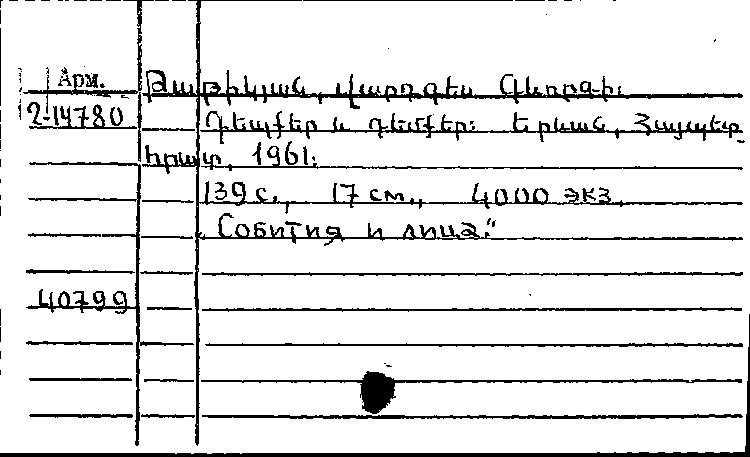 Арм.
Թաթիկյան, Վարդգես Գևորգի:
2-14780
Դեպքեր և դեմքեր: Երևան, Հայպետ-
հրատ, 1961:
139 с., 17 см., 4000 экз.
„События и лица.“
40799